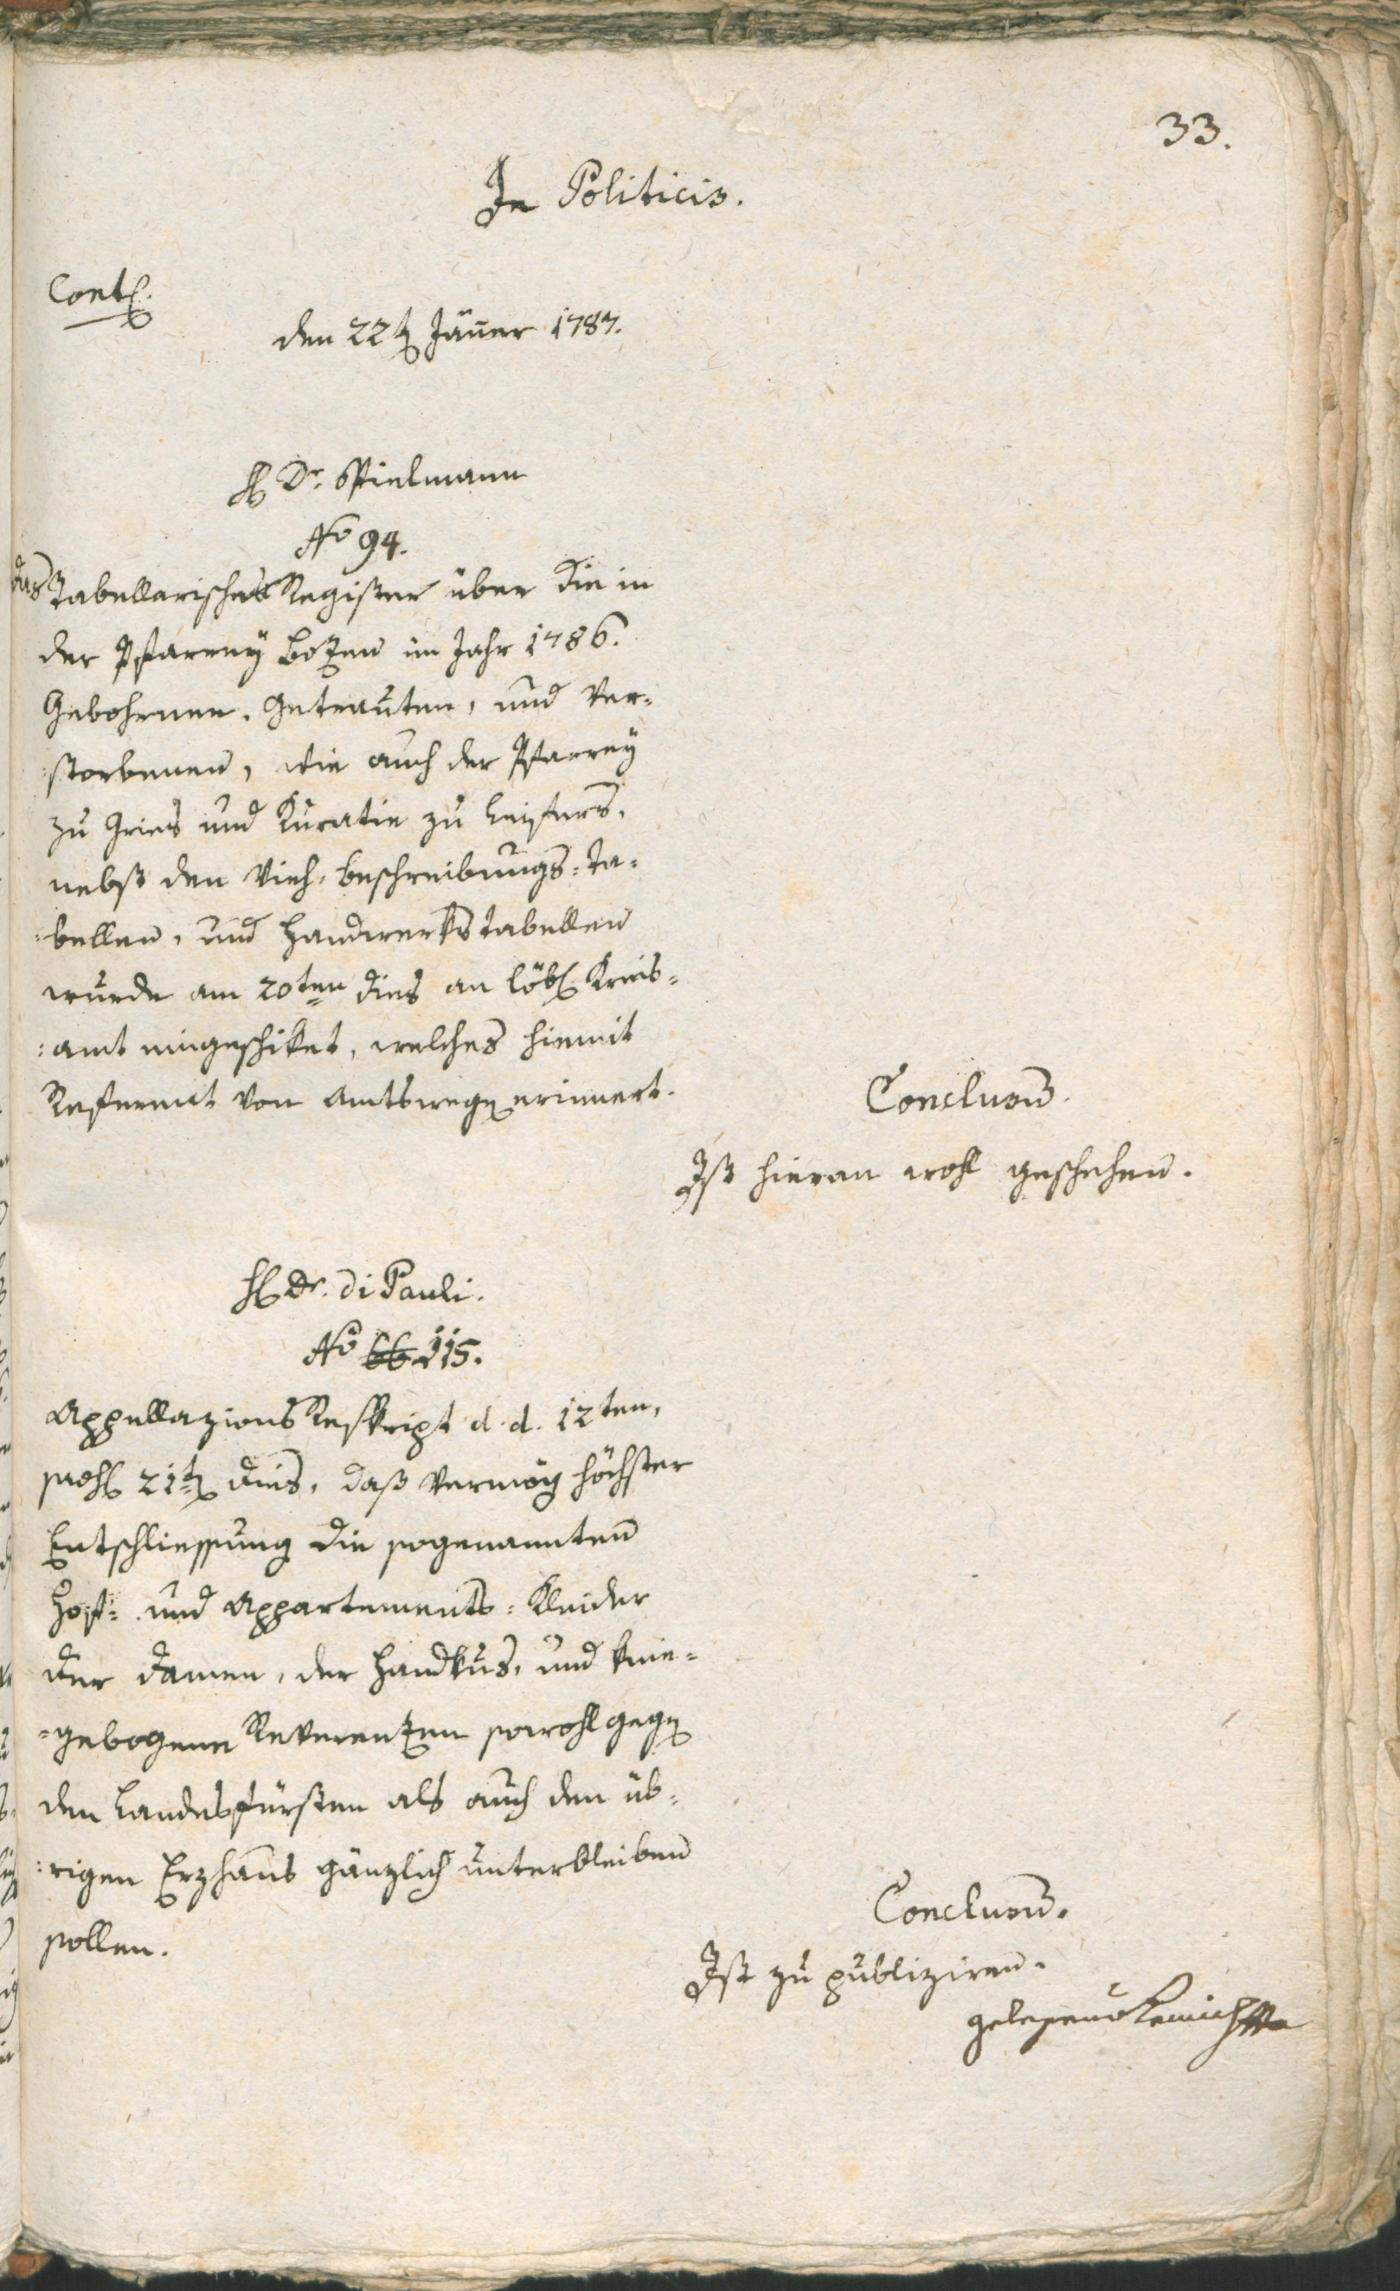 33.
In Politicis.
Cont.
den 22t Jäner 1787.
H Dr. Spielmann
No 94.
das Tabellarische Register über die in
der Pfarrey Bozen im Jahr 1786.
Gebohrnen, Getrauten, und Ver-
storbenen, wie auch der Pfarrey
zu Gries und Kuratie zu Leifers,
nebst den Vieh-beschreibungs-Ta-
bellen, und Handwerkstabellen
wurde am 20ten dies an löbl Kreis-
:amt eingeschiket, welches hiemit
Referent von Amtswegen erinnert.
Conclusum.
Ist hieran wohl geschehen.
H Dr. di Pauli.
No 66 115.
Appellazions Reskript d. d. 12ten,
21t dies, daß vermög höchster
Entschliessung die sogenannten
Hof- und Appartements-Kleider
der Damen, der Handkus, und knie-
-gebogene Reverenzen sowohl gegen
den Landesfürsten als auch den üb-
:rigen Erzhaus gänzlich unterbleiben
sollen.
Conclusum.
Ist zu publiziren.
gelesen